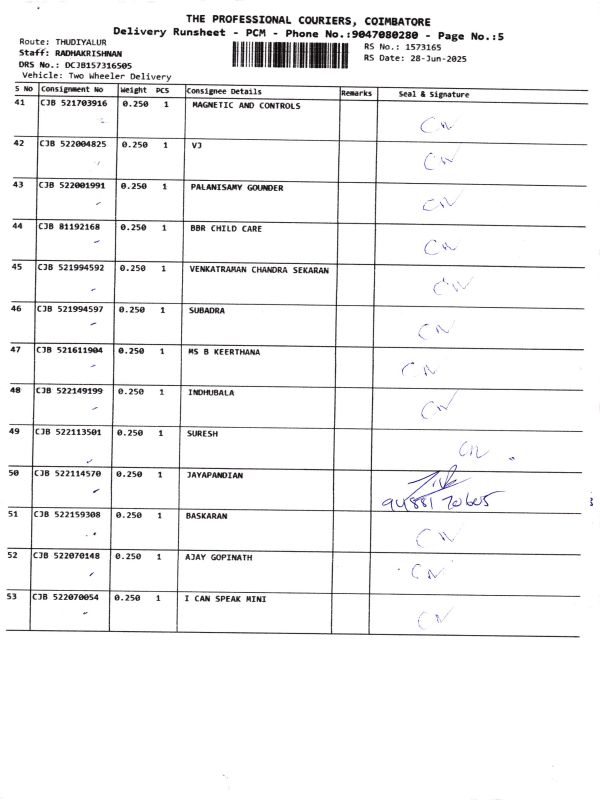 THE PROFESSIONAL COURIERS, COIMBATORE
Delivery Runsheet - PCM - Phone No.:9047080280 - Page No.:5
Route: THUDIYALUR
RS No.: 1573165
Staff: RADHAKRISHNAN
RS Date: 28-Jun-2025
DRS No.: DCJB157316505
Vehicle: Two Wheeler Delivery
S No Consignment No Weight PCS Consignee Details Remarks Seal & Signature
41 CJB 521703916 0.250 1 MAGNETIC AND CONTROLS CN
42 CJB 522004825 0.250 1 VJ CN
43 CJB 522001991 0.250 1 PALANISAMY GOUNDER CN
44 CJB 81192168 0.250 1 BBR CHILD CARE CN
45 CJB 521994592 0.250 1 VENKATRAMAN CHANDRA SEKARAN CN
46 CJB 521994597 0.250 1 SUBADRA CN
47 CJB 521611904 0.250 1 MS B KEERTHANA CN
48 CJB 522149199 0.250 1 INDHUBALA CN
49 CJB 522113501 0.250 1 SURESH CN
50 CJB 522114570 0.250 1 JAYAPANDIAN
94881 70605
51 CJB 522159308 0.250 1 BASKARAN CN
52 CJB 522070148 0.250 1 AJAY GOPINATH CN
53 CJB 522070054 0.250 1 I CAN SPEAK MINI CN